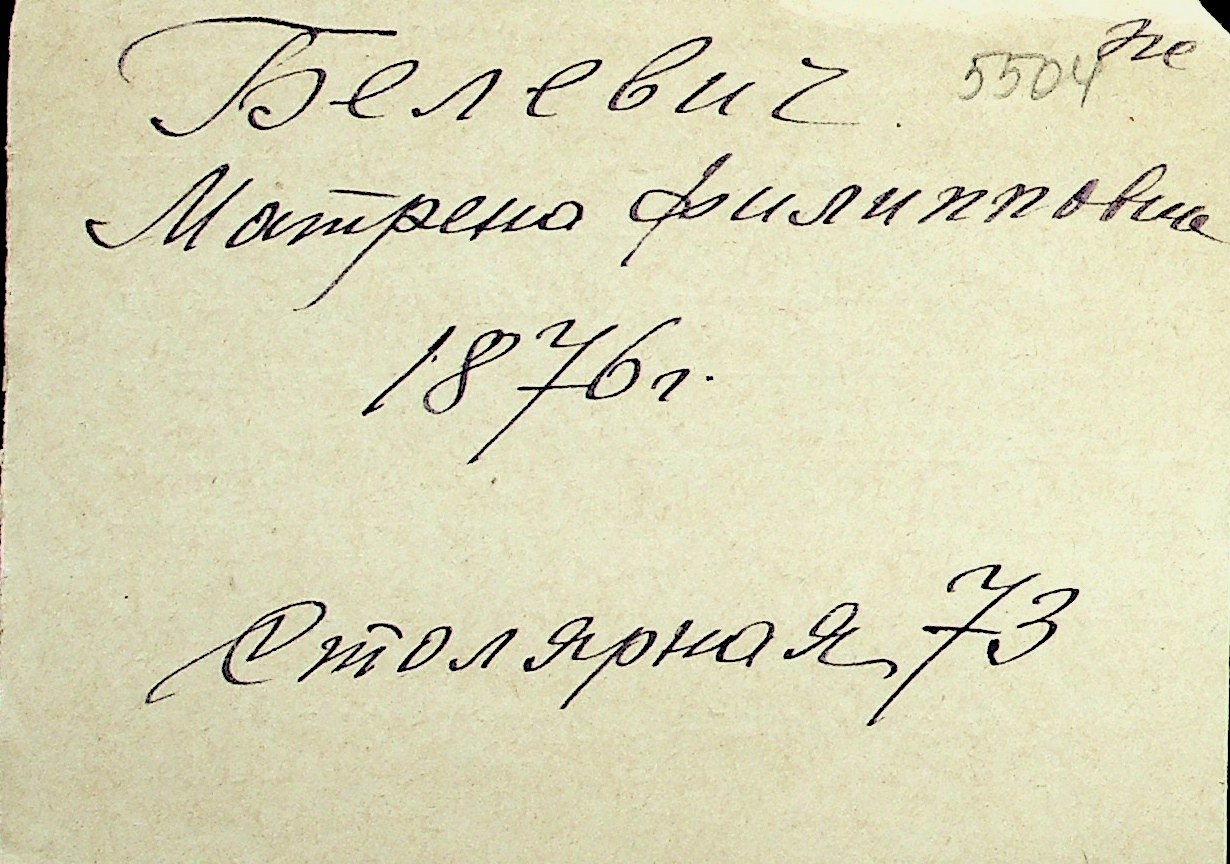 Белевич 5504
Матрена Филипповна
1876г.
Столярная 73